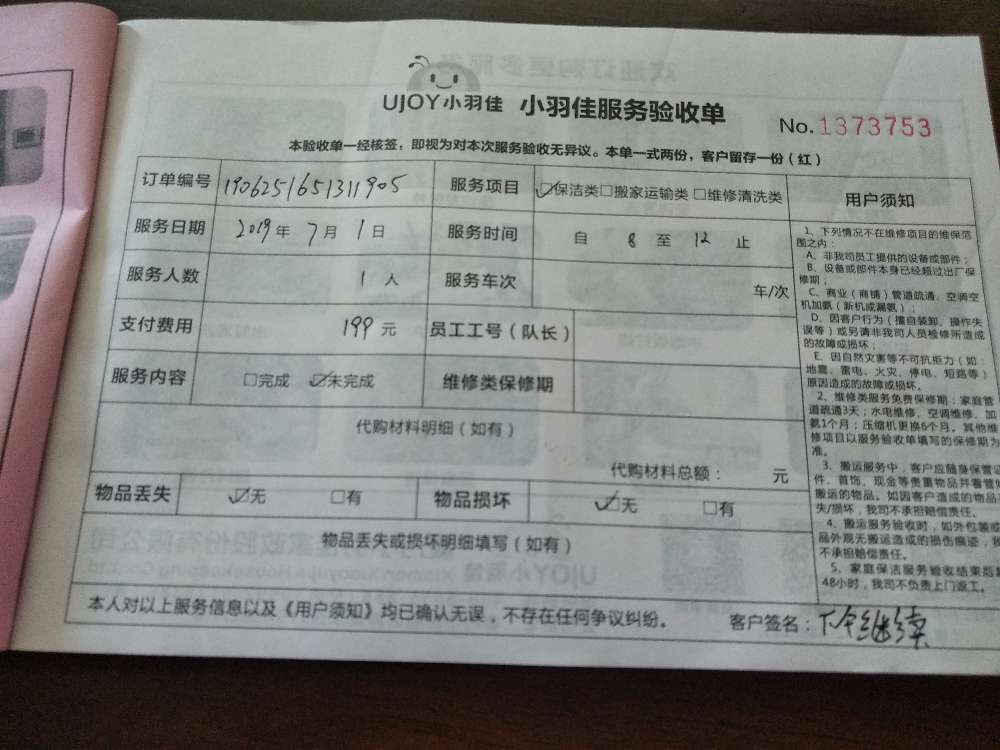 UJOY小羽佳 小羽佳服务验收单
No.1373753
本验收单一经核签，即视为对本次服务验收无异议。本单一式两份，客户留存一份（红）
订单编号 1906251651311905 服务项目 ☑保洁类□搬家运输类□维修清洗类
服务日期 2019年 7月 1日 服务时间 自 8 至 12 止
服务人数 1人 服务车次 车/次
支付费用 199元 员工工号（队长）
服务内容 □完成 ☑未完成 维修类保修期
代购材料明细（如有）
代购材料总额： 元
物品丢失 ☑无 □有 物品损坏 ☑无 □有
物品丢失或损坏明细填写（如有）
本人对以上服务信息以及《用户须知》均已确认无误，不存在任何争议纠纷。 客户签名：下午继续
用户须知
1、下列情况不在维修项目的维保范
围之内：
A、非我司员工提供的设备或部件；
B、设备或部件本身已经超过出厂保
修期；
C、商业（商铺）管道疏通、空调空
机加氨（新机或漏氨）；
D、因客户行为（擅自装卸、操作失
误等）或另请非我司人员检修所造成
的故障或损坏；
E、因自然灾害等不可抗拒力（如：
地震、雷电、火灾、停电、短路等）
原因造成的故障或损坏。
2、维修类服务免费保修期：家庭管
道疏通3天；水电维修、空调维修、加
氨1个月；压缩机更换6个月。其他维
修项目以服务验收单填写的保修期为
准。
3、搬运服务中，客户应随身保管证
件、首饰、现金等贵重物品并看管好
搬运的物品。如因客户造成的物品丢
失/损坏，我司不承担赔偿责任。
4、搬运服务验收时，如外包装或
品外观无搬运造成的损伤痕迹，我
不承担赔偿责任。
5、家庭保洁服务验收结束后超
48小时，我司不负责上门返工。